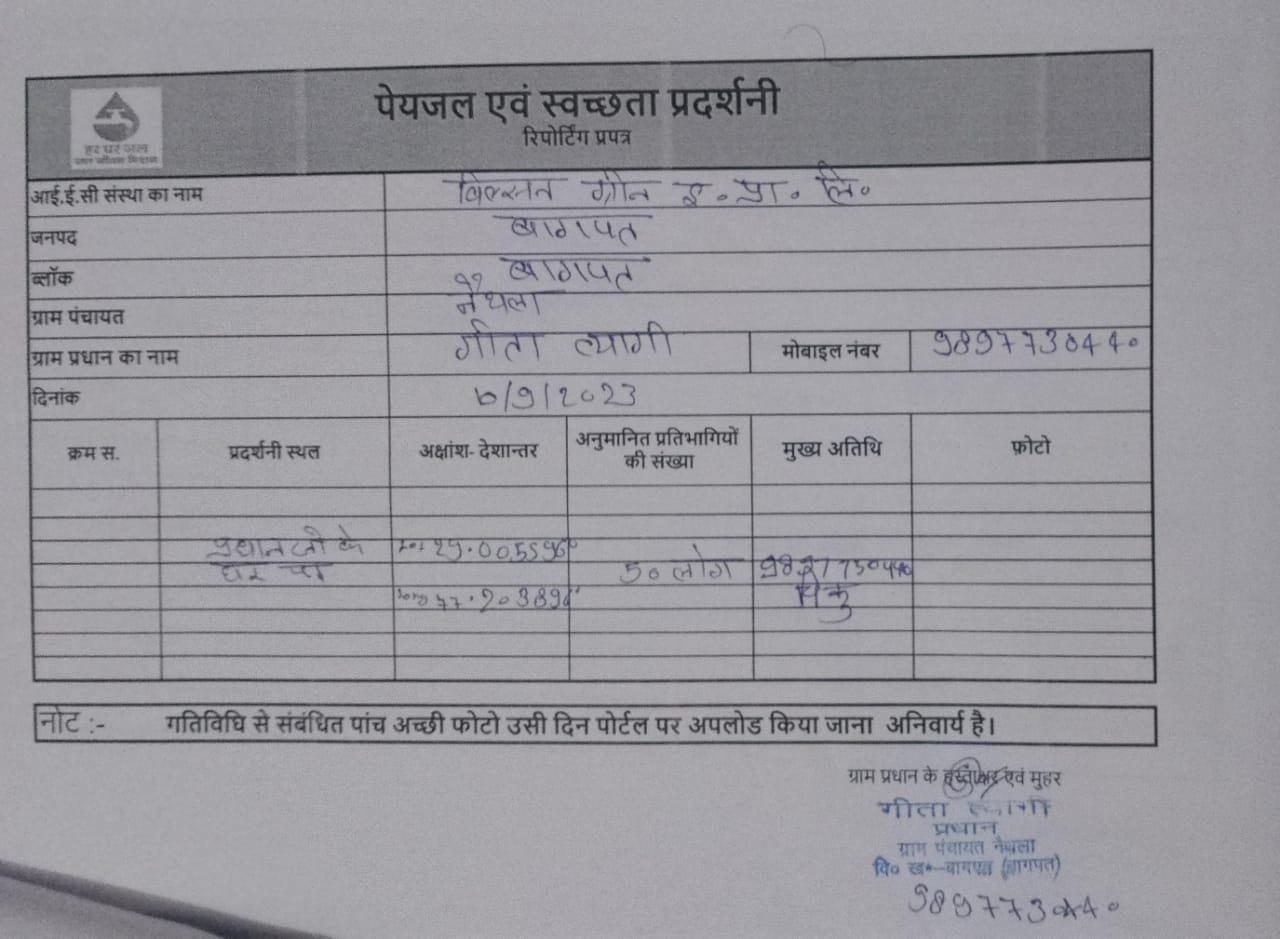 हर घर जल
जल जीवन मिशन
पेयजल एवं स्वच्छता प्रदर्शनी
रिपोर्टिंग प्रपत्र
आई.ई.सी संस्था का नाम विल्सन ग्रीन इ. प्रा. लि.
जनपद बागपत
ब्लॉक बागपत
ग्राम पंचायत नैथला
ग्राम प्रधान का नाम गीता त्यागी मोबाइल नंबर 9897730440
दिनांक 6/9/2023
क्रम स. प्रदर्शनी स्थल अक्षांश- देशान्तर अनुमानित प्रतिभागियों की संख्या मुख्य अतिथि फ़ोटो
प्रधान जी के 29.005596°
घर पर 50 लोग
77.203896°
नोट :- गतिविधि से संबंधित पांच अच्छी फोटो उसी दिन पोर्टल पर अपलोड किया जाना अनिवार्य है।
ग्राम प्रधान के हस्ताक्षर एवं मुहर
गीता त्यागी
प्रधान
ग्राम पंचायत नैथला
वि० ख०-बागपत (बागपत)
9897730440